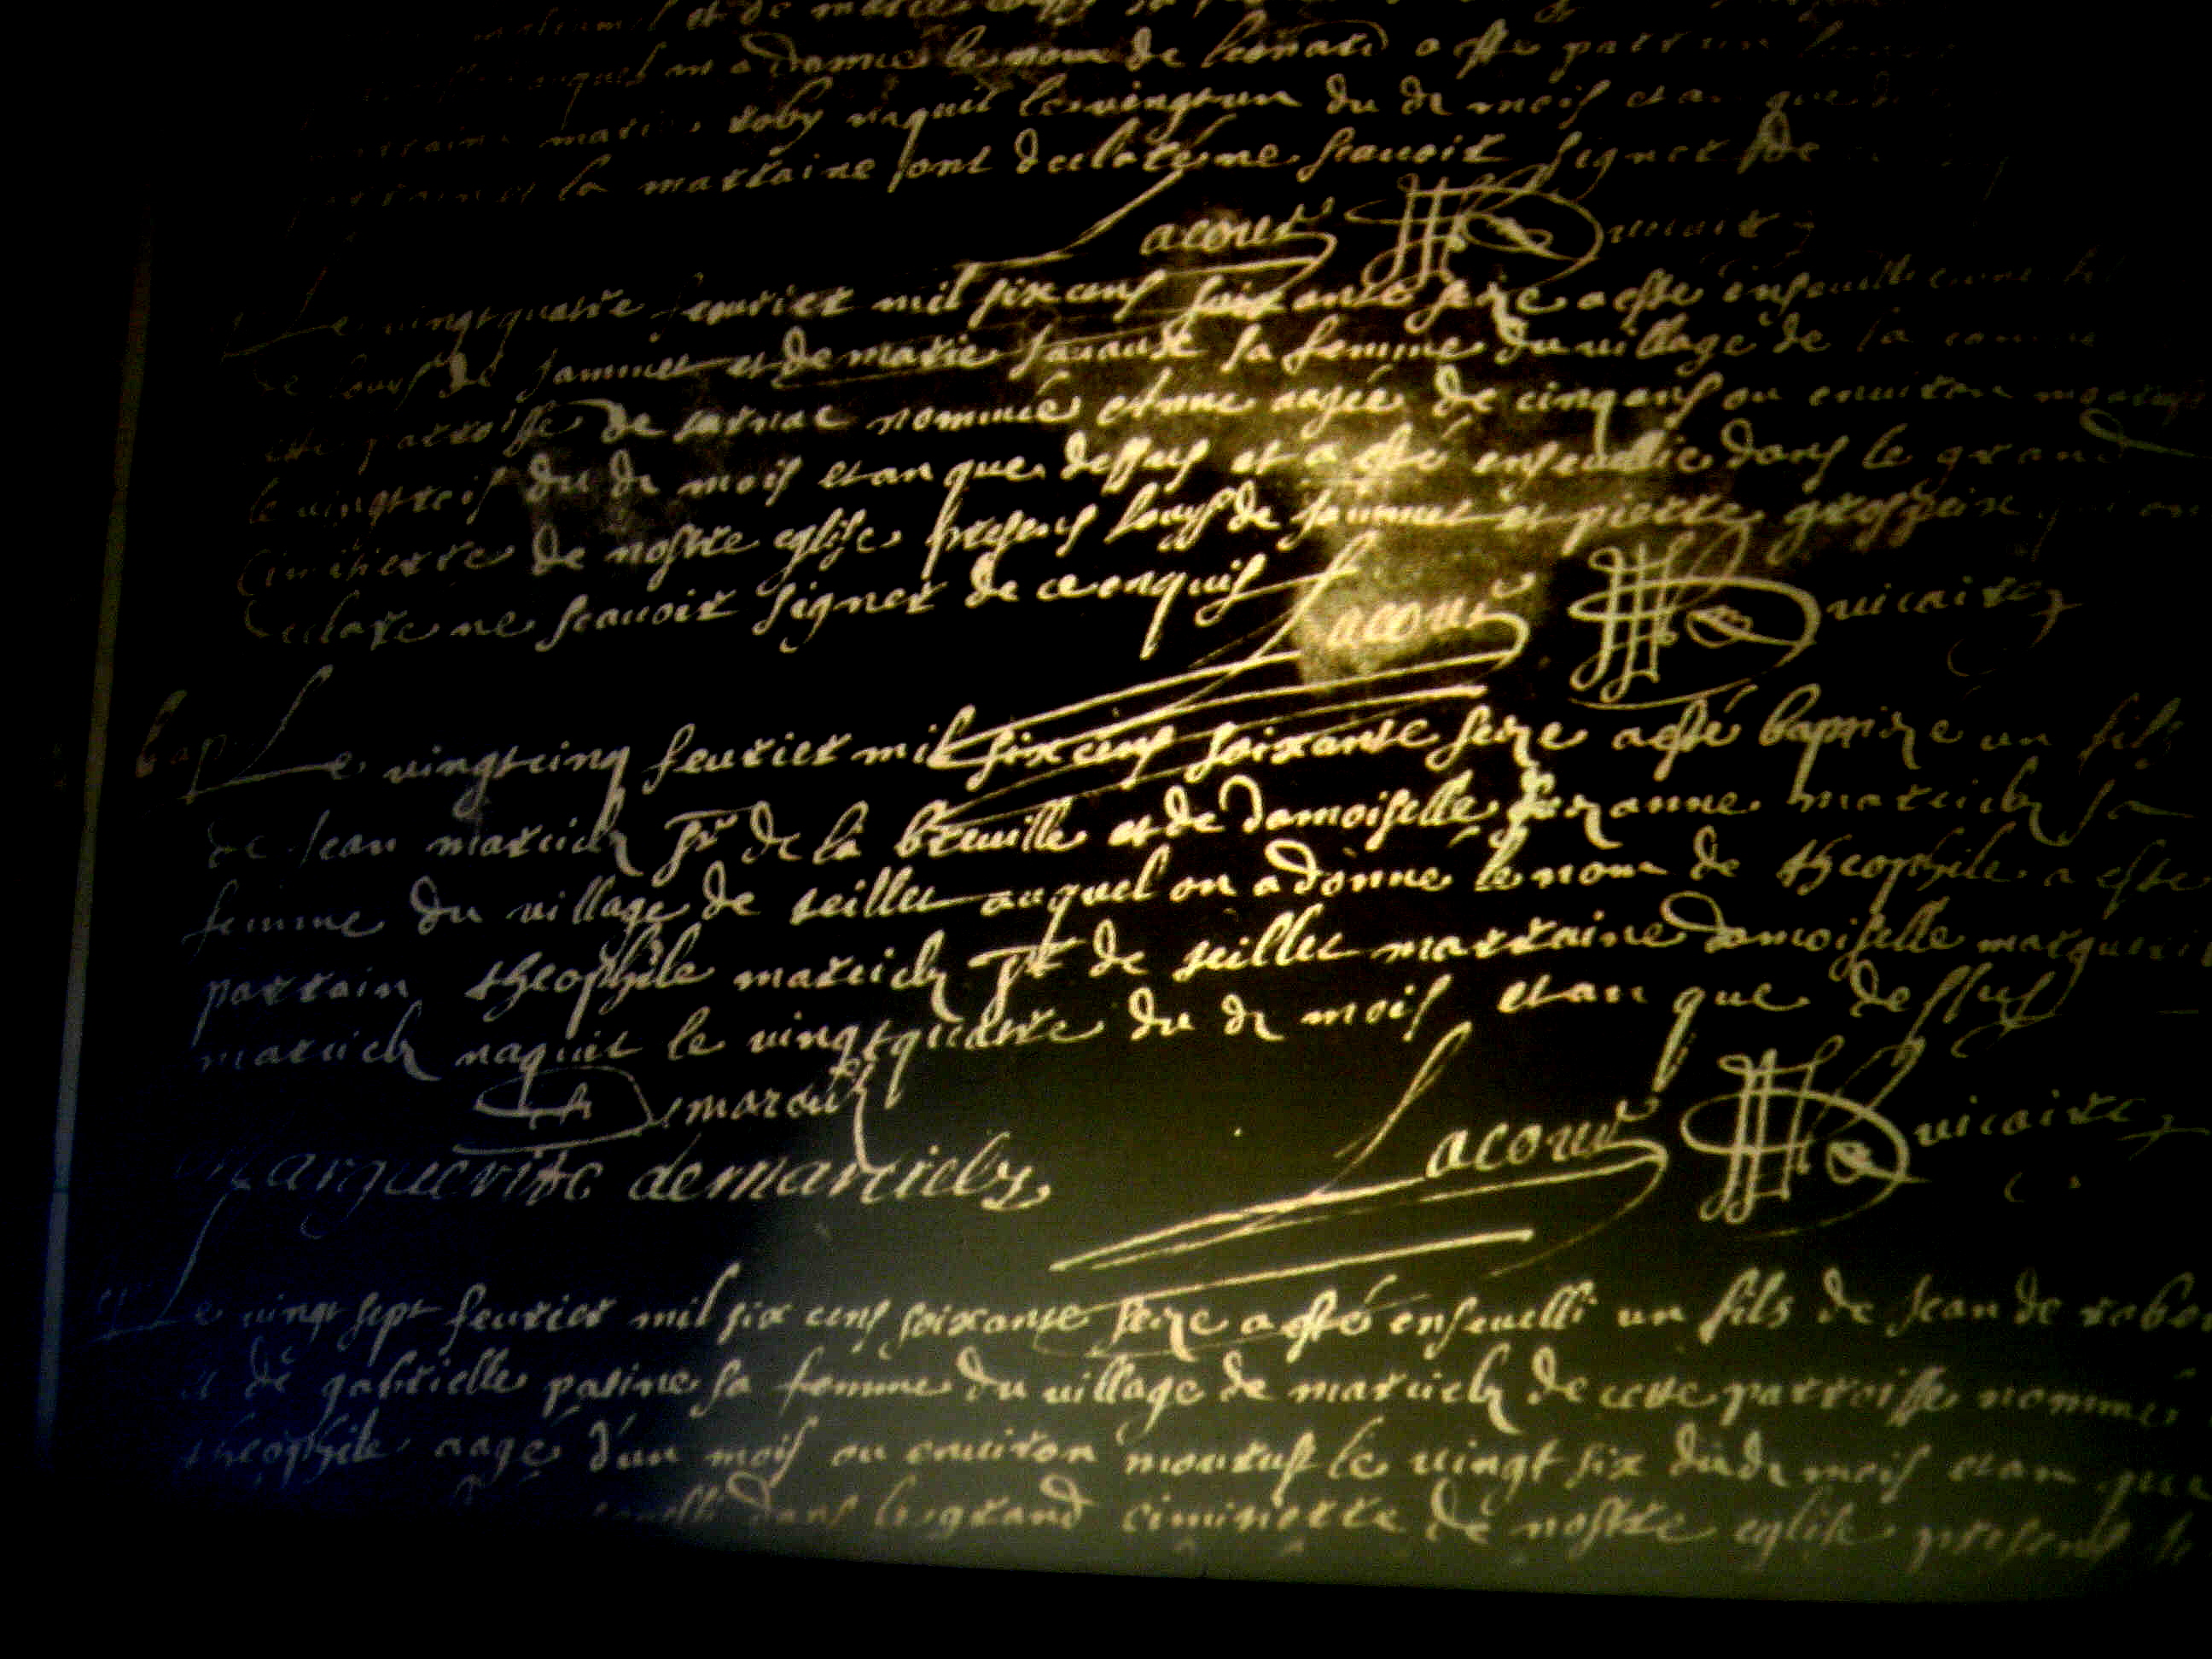 et de marie
auquel on a donné le nom de leonard a esté parrain
marie roby naquit le vingtun du dt mois et an que
la marraine ont declaré ne scauoir signer de
Lacour vicaire
Le vingtquatre feurier mil six cens soixante seize a esté enseuelie une
de louys de jammet et de marie sa femme du village de la
parroisse de nommée aagée de cinq ans ou enuiron
le vingtrois du dt mois et an que dessus et a esté enseuelie dans le grand
cimitierre de nostre eglise presens louys de jammet et pierre qui on
declare ne scauoir signer de ce enquis
Lacour vicaire
bap Le vingtcinq feurier mil six cens soixante seize a esté baptizé un fils
de jean marcielz sr de la breuille et de damoiselle suzanne marcielz sa
femme du village de seillet auquel on a donné le nom de theophile a esté
parrain theophile marcielz sr de seillet marraine damoiselle marguerite
marcielz naquit le vingtquatre du dt mois et an que dessus
Demarcielz
Marguerite demarcielz Lacour vicaire
Le vingt sept feurier mil six cens soixante seize a esté enseuelli un fils de jean de
et de gabrielle patine sa femme du village de marcielz de cette parroisse nommé
theophile aagé d'un mois ou enuiron mourust le vingt six du dt mois et an que
dans le grand cimitierre de nostre eglise presens